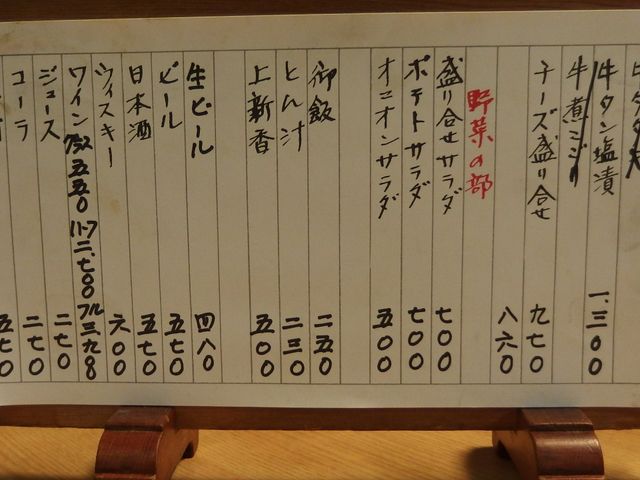 牛タン塩漬 一、三〇〇
牛煮こごり
チーズ盛り合せ 九七〇
八六〇
野菜の部
盛り合せサラダ 七〇〇
ポテトサラダ 七〇〇
オニオンサラダ 五〇〇
御飯 二五〇
とん汁 二三〇
上新香 五〇〇
生ビール 四八〇
ビール 五七〇
日本酒 五七〇
ウィスキー 六〇〇
ワイン グラス 五五〇 ハーフ 二、七〇〇 フル 三、九〇
ジュース 二七〇
コーラ 二七〇
五七〇